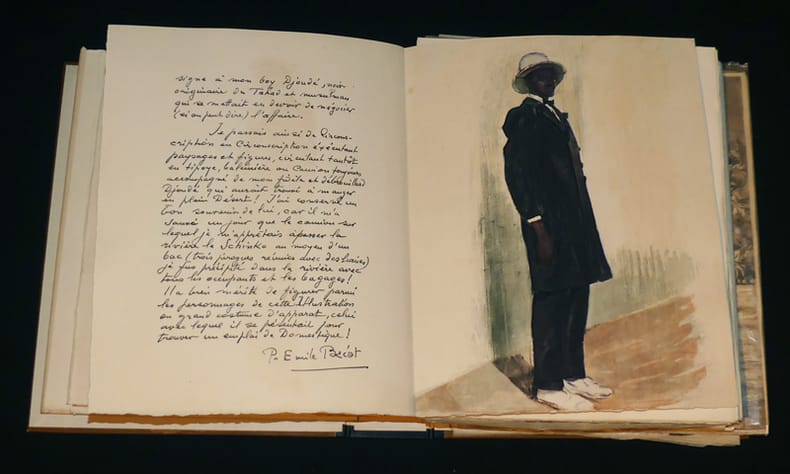 signe à mon boy Djoudé, noir
originaire du Tchad et musulman
qui se mettait en devoir de négocier
(si on peut dire) l'affaire.
Je passais ainsi de Circons-
cription en Circonscription éxécutant
paysages et figures, circulant tantôt
en tipoye, baleinière ou Camion toujours
accompagné de mon fidèle et débrouillard
Djoudé qui aurait trouvé à manger
en plein Désert! J'ai conservé un
bon souvenir de lui, car il m'a
sauvé un jour que le camion sur
lequel je m'apprêtais à passer la
rivière la au moyen d'un
bac (trois pirogues réunies avec des lianes)
je fus précipité dans la rivière avec
tous les occupants et les bagages!
Il a bien mérité de figurer parmi
les personnages de cette Illustration
en grand costume d'apparat, celui
avec lequel il se présentait pour
trouver un emploi de Domestique!
P. Emile Bécat